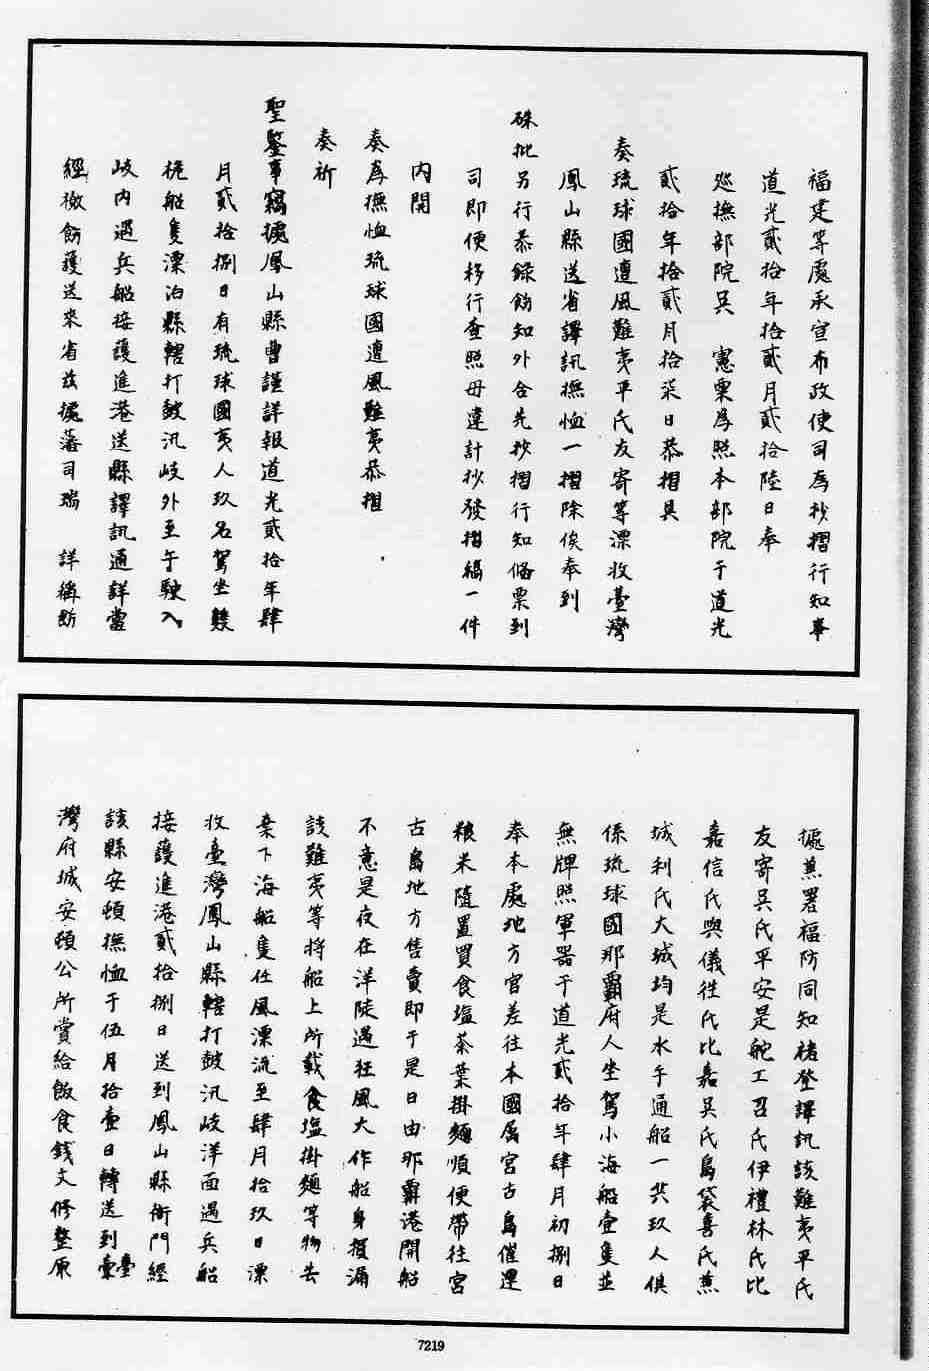 福建等處承宣布政使司為抄摺行知事
道光貳拾年拾貳月貳拾陸日奉
巡撫部院吳　憲票為照本部院于道光
貳拾年拾貳月拾柒日恭摺具
奏琉球國遭風難夷平氏友寄等漂收臺灣
鳳山縣送省譯訊撫恤一摺除俟奉到
硃批另行恭錄飭知外合先抄摺行知備票到
司即便移行查照毋違計抄發摺稿一件
內開
奏為撫恤琉球國遭風難夷恭摺
奏祈
聖鑒事竊據鳳山縣曹謹詳報道光貳拾年肆
月貳拾捌日有琉球國夷人玖名駕坐雙
桅船隻漂泊縣轄打鼓汛岐外至午駛入
岐內遇兵船接護進港送縣譯訊通詳當
經檄飭護送來省茲據藩司瑞　詳稱飭
據兼署福防同知褚登譯訊該難夷平氏
友寄吳氏平安是舵工召氏伊禮林氏比
嘉信氏與儀徃氏比嘉吳氏島袋喜氏蕉
城利氏大城均是水手通船一共玖人俱
係琉球國那霸府人坐駕小海船壹隻並
無牌照軍器于道光貳拾年肆月初捌日
奉本處地方官差往本國屬宮古島催運
粮米隨置買食塩茶葉掛麵順便帶往宮
古島地方售賣即于是日由那霸港開船
不意是夜在洋陡遇狂風大作船身損漏
該難夷等將船上所載食塩掛麵等物丟
棄下海船隻任風漂流至肆月拾玖日漂
收臺灣鳳山縣轄打鼓汛岐洋面遇兵船
接護進港貳拾捌日送到鳳山縣衙門經
該縣安頓撫恤于伍月拾壹日轉送到臺
灣府城安頓公所賞給飯食錢文修整原
7219